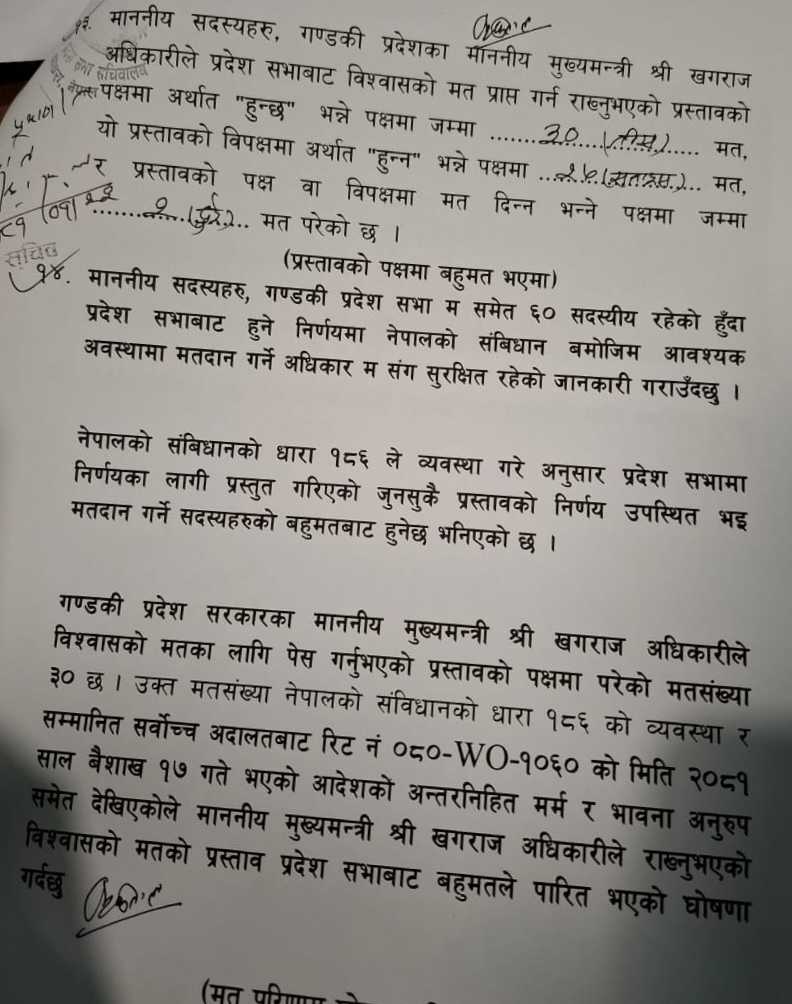 १३. माननीय सदस्यहरु, गण्डकी प्रदेशका माननीय मुख्यमन्त्री श्री खगराज
अधिकारीले प्रदेश सभाबाट विश्वासको मत प्राप्त गर्न राख्नुभएको प्रस्तावको
पक्षमा अर्थात "हुन्छ" भन्ने पक्षमा जम्मा .......३०...(तीस)..... मत,
यो प्रस्तावको विपक्षमा अर्थात "हुन्न" भन्ने पक्षमा ... मत,
र प्रस्तावको पक्ष वा विपक्षमा मत दिन्न भन्ने पक्षमा जम्मा
.........२..(दुई)... मत परेको छ ।
सचिव
(प्रस्तावको पक्षमा बहुमत भएमा)
१४. माननीय सदस्यहरु, गण्डकी प्रदेश सभा म समेत ६० सदस्यीय रहेको हुँदा
प्रदेश सभाबाट हुने निर्णयमा नेपालको संबिधान बमोजिम आवश्यक
अवस्थामा मतदान गर्ने अधिकार म संग सुरक्षित रहेको जानकारी गराउँदछु ।
नेपालको संबिधानको धारा १८६ ले व्यवस्था गरे अनुसार प्रदेश सभामा
निर्णयका लागी प्रस्तुत गरिएको जुनसुकै प्रस्तावको निर्णय उपस्थित भइ
मतदान गर्ने सदस्यहरुको बहुमतबाट हुनेछ भनिएको छ ।
गण्डकी प्रदेश सरकारका माननीय मुख्यमन्त्री श्री खगराज अधिकारीले
विश्वासको मतका लागि पेस गर्नुभएको प्रस्तावको पक्षमा परेको मतसंख्या
३० छ । उक्त मतसंख्या नेपालको संविधानको धारा १८६ को व्यवस्था र
सम्मानित सर्वोच्च अदालतबाट रिट नं ०८०-WO-१०६० को मिति २०८१
साल बैशाख १७ गते भएको आदेशको अन्तरनिहित मर्म र भावना अनुरुप
समेत देखिएकोले माननीय मुख्यमन्त्री श्री खगराज अधिकारीले राख्नुभएको
विश्वासको मतको प्रस्ताव प्रदेश सभाबाट बहुमतले पारित भएको घोषणा
गर्दछु
(मत परिणाम